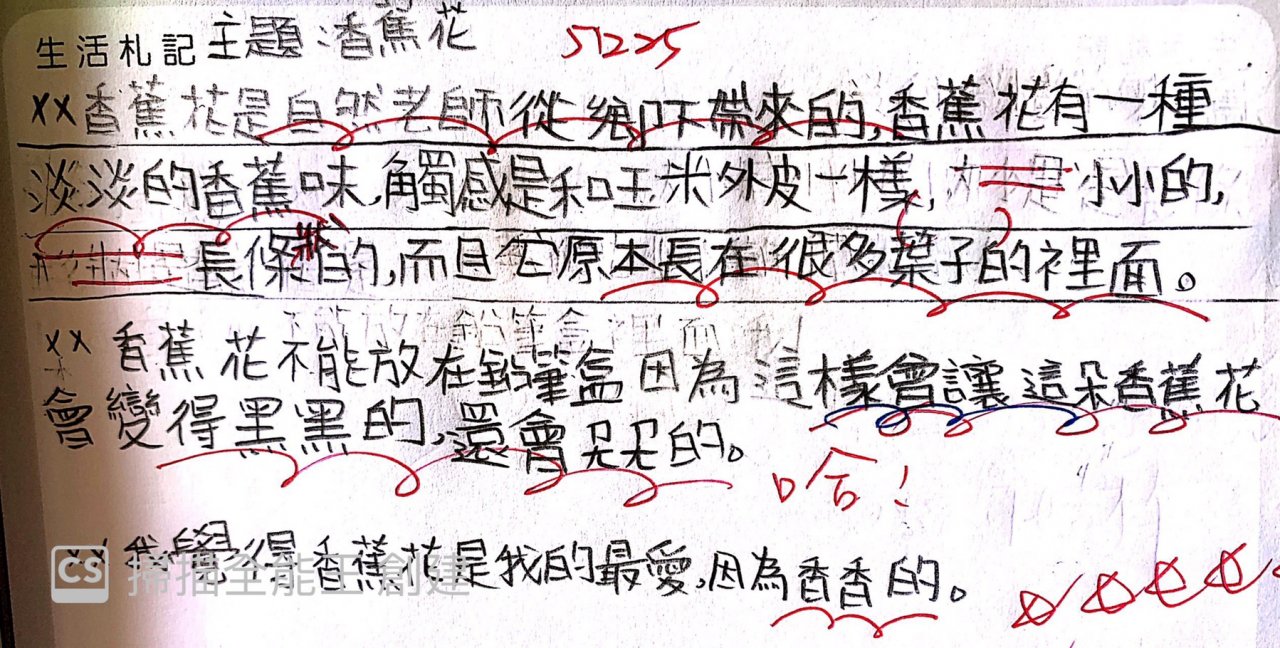 生活札記 主題:香蕉花 51225
××香蕉花是自然老師從鄉下帶來的,香蕉花有一種
淡淡的香蕉味,觸感是和玉米外皮一樣,小小的,
長條狀的,而且它原本長在很多葉子的裡面。
××香蕉花不能放在鉛筆盒因為這樣會讓這朵香蕉花
會變得黑黑的,還會呆呆的。
哈!
××我覺得香蕉花是我的最愛,因為香香的。
CS 掃描全能王 創建